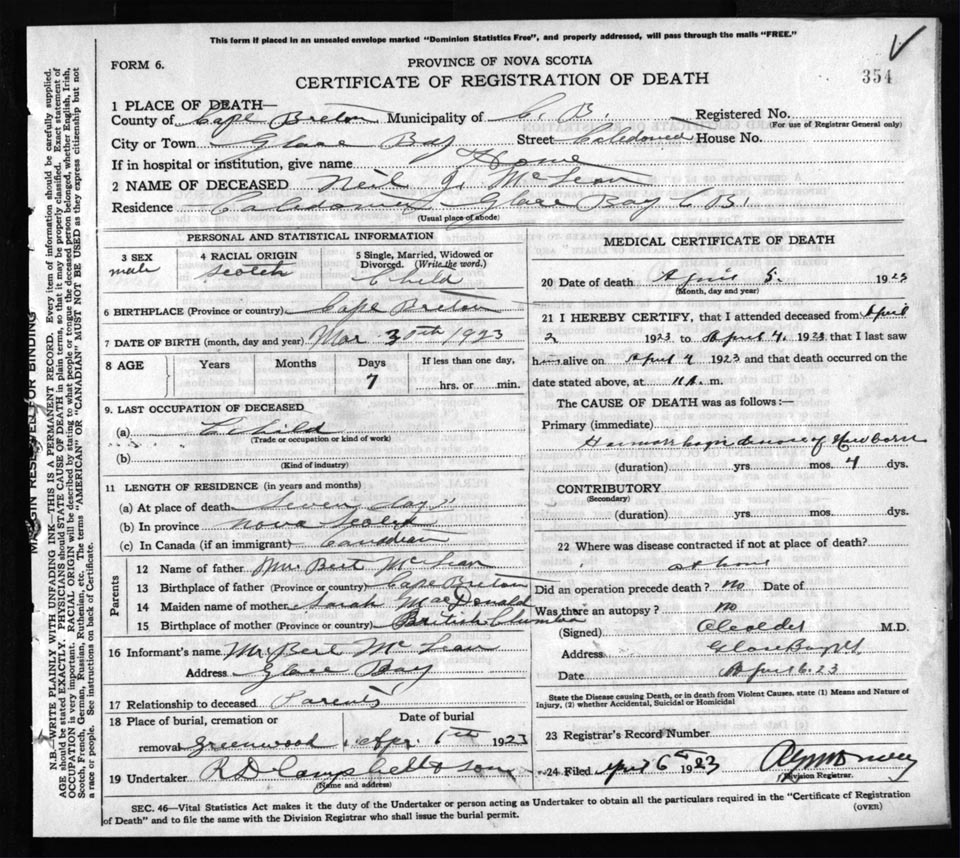 This form if placed in an unsealed envelope marked "Dominion Statistics Free", and properly addressed, will pass through the mails "FREE."
FORM 6.
PROVINCE OF NOVA SCOTIA
CERTIFICATE OF REGISTRATION OF DEATH
354
1 PLACE OF DEATH—
County of Cape Breton Municipality of C. B. Registered No.
(For use of Registrar General only)
City or Town Glace Bay Street Caledonia House No.
If in hospital or institution, give name Home
2 NAME OF DECEASED Neil J. McLean
Residence Caledonia Glace Bay C.B.
(Usual place of abode)
PERSONAL AND STATISTICAL INFORMATION
3 SEX male
4 RACIAL ORIGIN Scotch
5 Single, Married, Widowed or Divorced. (Write the word.) Child
6 BIRTHPLACE (Province or country) Cape Breton
7 DATE OF BIRTH (month, day and year) Mar 30th 1923
8 AGE Years Months Days 7 If less than one day, hrs. or min.
9. LAST OCCUPATION OF DECEASED
(a) Child
(Trade or occupation or kind of work)
(b)
(Kind of industry)
11 LENGTH OF RESIDENCE (in years and months)
(a) At place of death Seven days
(b) In province Nova Scotia
(c) In Canada (if an immigrant) Canadian
Parents
12 Name of father Mr. Bert McLean
13 Birthplace of father (Province or country) Cape Breton
14 Maiden name of mother Sarah MacDonald
15 Birthplace of mother (Province or country) British Clumbia
16 Informant's name Mr. Bert McLean
Address Glace Bay
17 Relationship to deceased Parents
18 Place of burial, cremation or removal Greenwood Date of burial Apr. 6th 1923
19 Undertaker R D Campbell & Sons
(Name and address)
MEDICAL CERTIFICATE OF DEATH
20 Date of death April 5. 1923
(Month, day and year)
21 I HEREBY CERTIFY, that I attended deceased from April
2 1923 to April 4, 1923 that I last saw
him alive on April 4 1923 and that death occurred on
date stated above, at m.
The CAUSE OF DEATH was as follows:—
Primary (immediate)
Haemorrhagic disease of Newborn
(duration) yrs. mos. 4 dys.
CONTRIBUTORY
(Secondary)
(duration) yrs. mos. dys.
22 Where was disease contracted if not at place of death?
at home
Did an operation precede death? No
Was there an autopsy? No
(Signed) M.D.
Address Glace Bay NS
Date April 6. 23
State the Disease causing Death, or in death from Violent Causes, state (1) Means and Nature of Injury, (2) whether Accidental, Suicidal or Homicidal
23 Registrar's Record Number
24 Filed April 6th 1923
Division Registrar.
SEC. 46—Vital Statistics Act makes it the duty of the Undertaker or person acting as Undertaker to obtain all the particulars required in the "Certificate of Registration
of Death" and to file the same with the Division Registrar who shall issue the burial permit.
(OVER)
MARGIN RESERVED FOR BINDING
N.B.—WRITE PLAINLY WITH UNFADING INK—THIS IS A PERMANENT RECORD. Every item of information should be carefully supplied.
AGE should be stated EXACTLY. PHYSICIANS should STATE CAUSE OF DEATH in plain terms, so that it may be properly classified. Exact statement of
OCCUPATION is very important. RACIAL ORIGIN will be described by stating to what people or tongue the deceased person belonged, whether English, Irish,
Scotch, French, German, Russian, Ruthenian, etc. The terms "AMERICAN" OR "CANADIAN" MUST NOT BE USED as they express citizenship but not
a race or people. See instructions on back of Certificate.